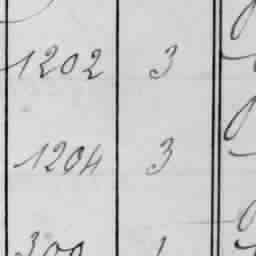 1202 3
1204 3
300 1